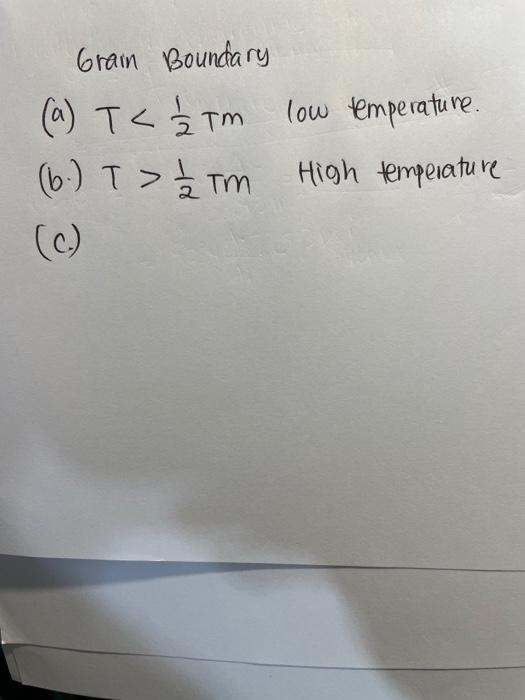 Grain Boundary
(a) T < 1/2 Tm low temperature.
(b.) T > 1/2 TM High temperature
(c.)